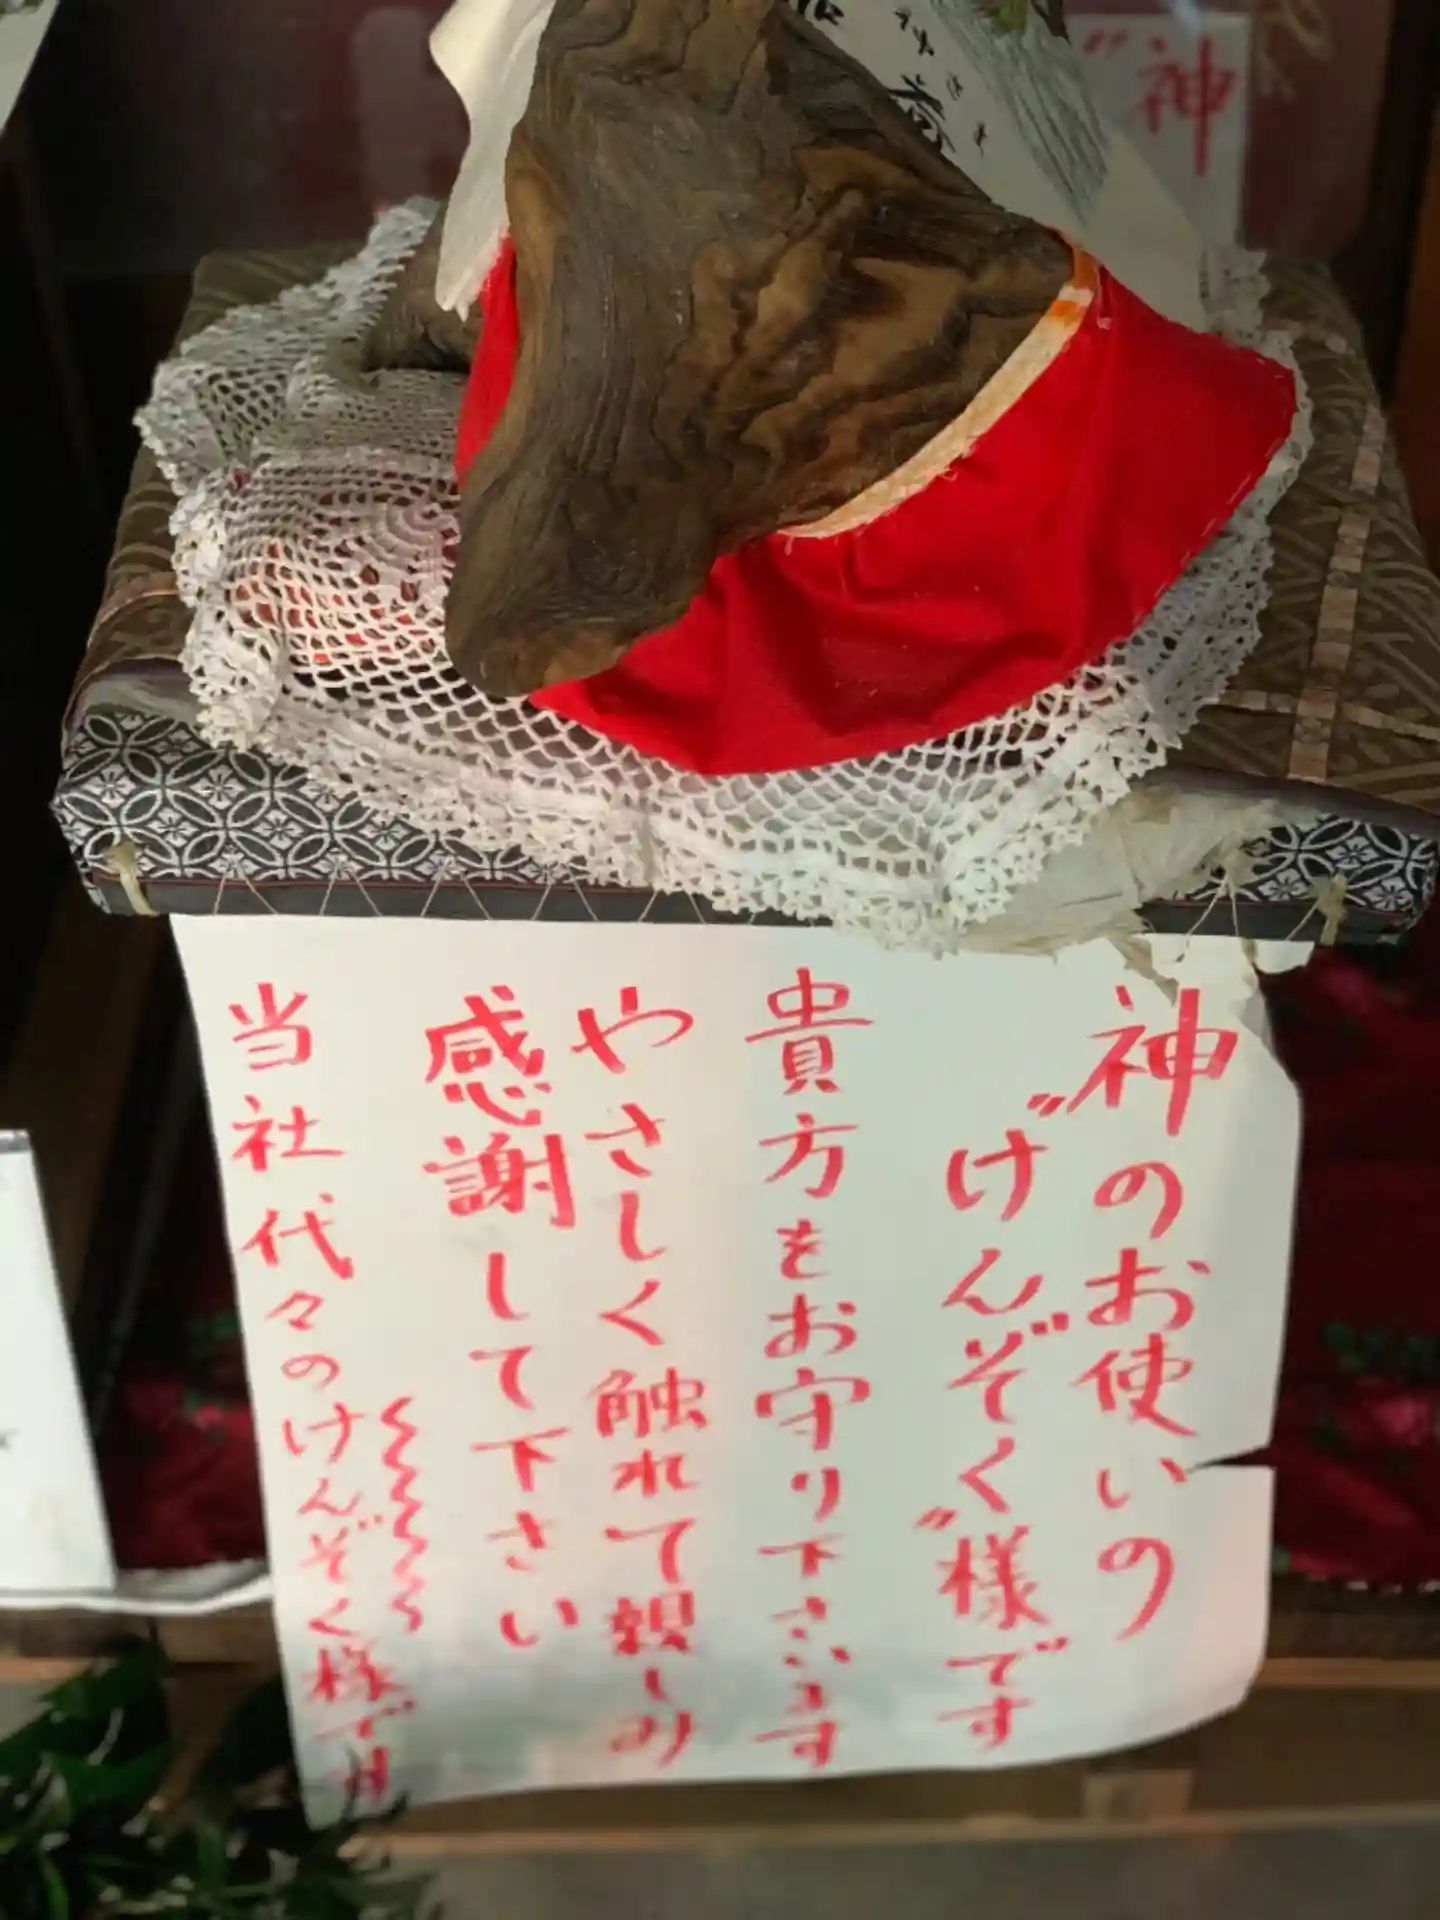 神
神のお使いの
〝けんぞく〟様です
貴方をお守り下さいます
やさしく触れて親しみ
感謝して下さい
当社代々のけんぞく様です